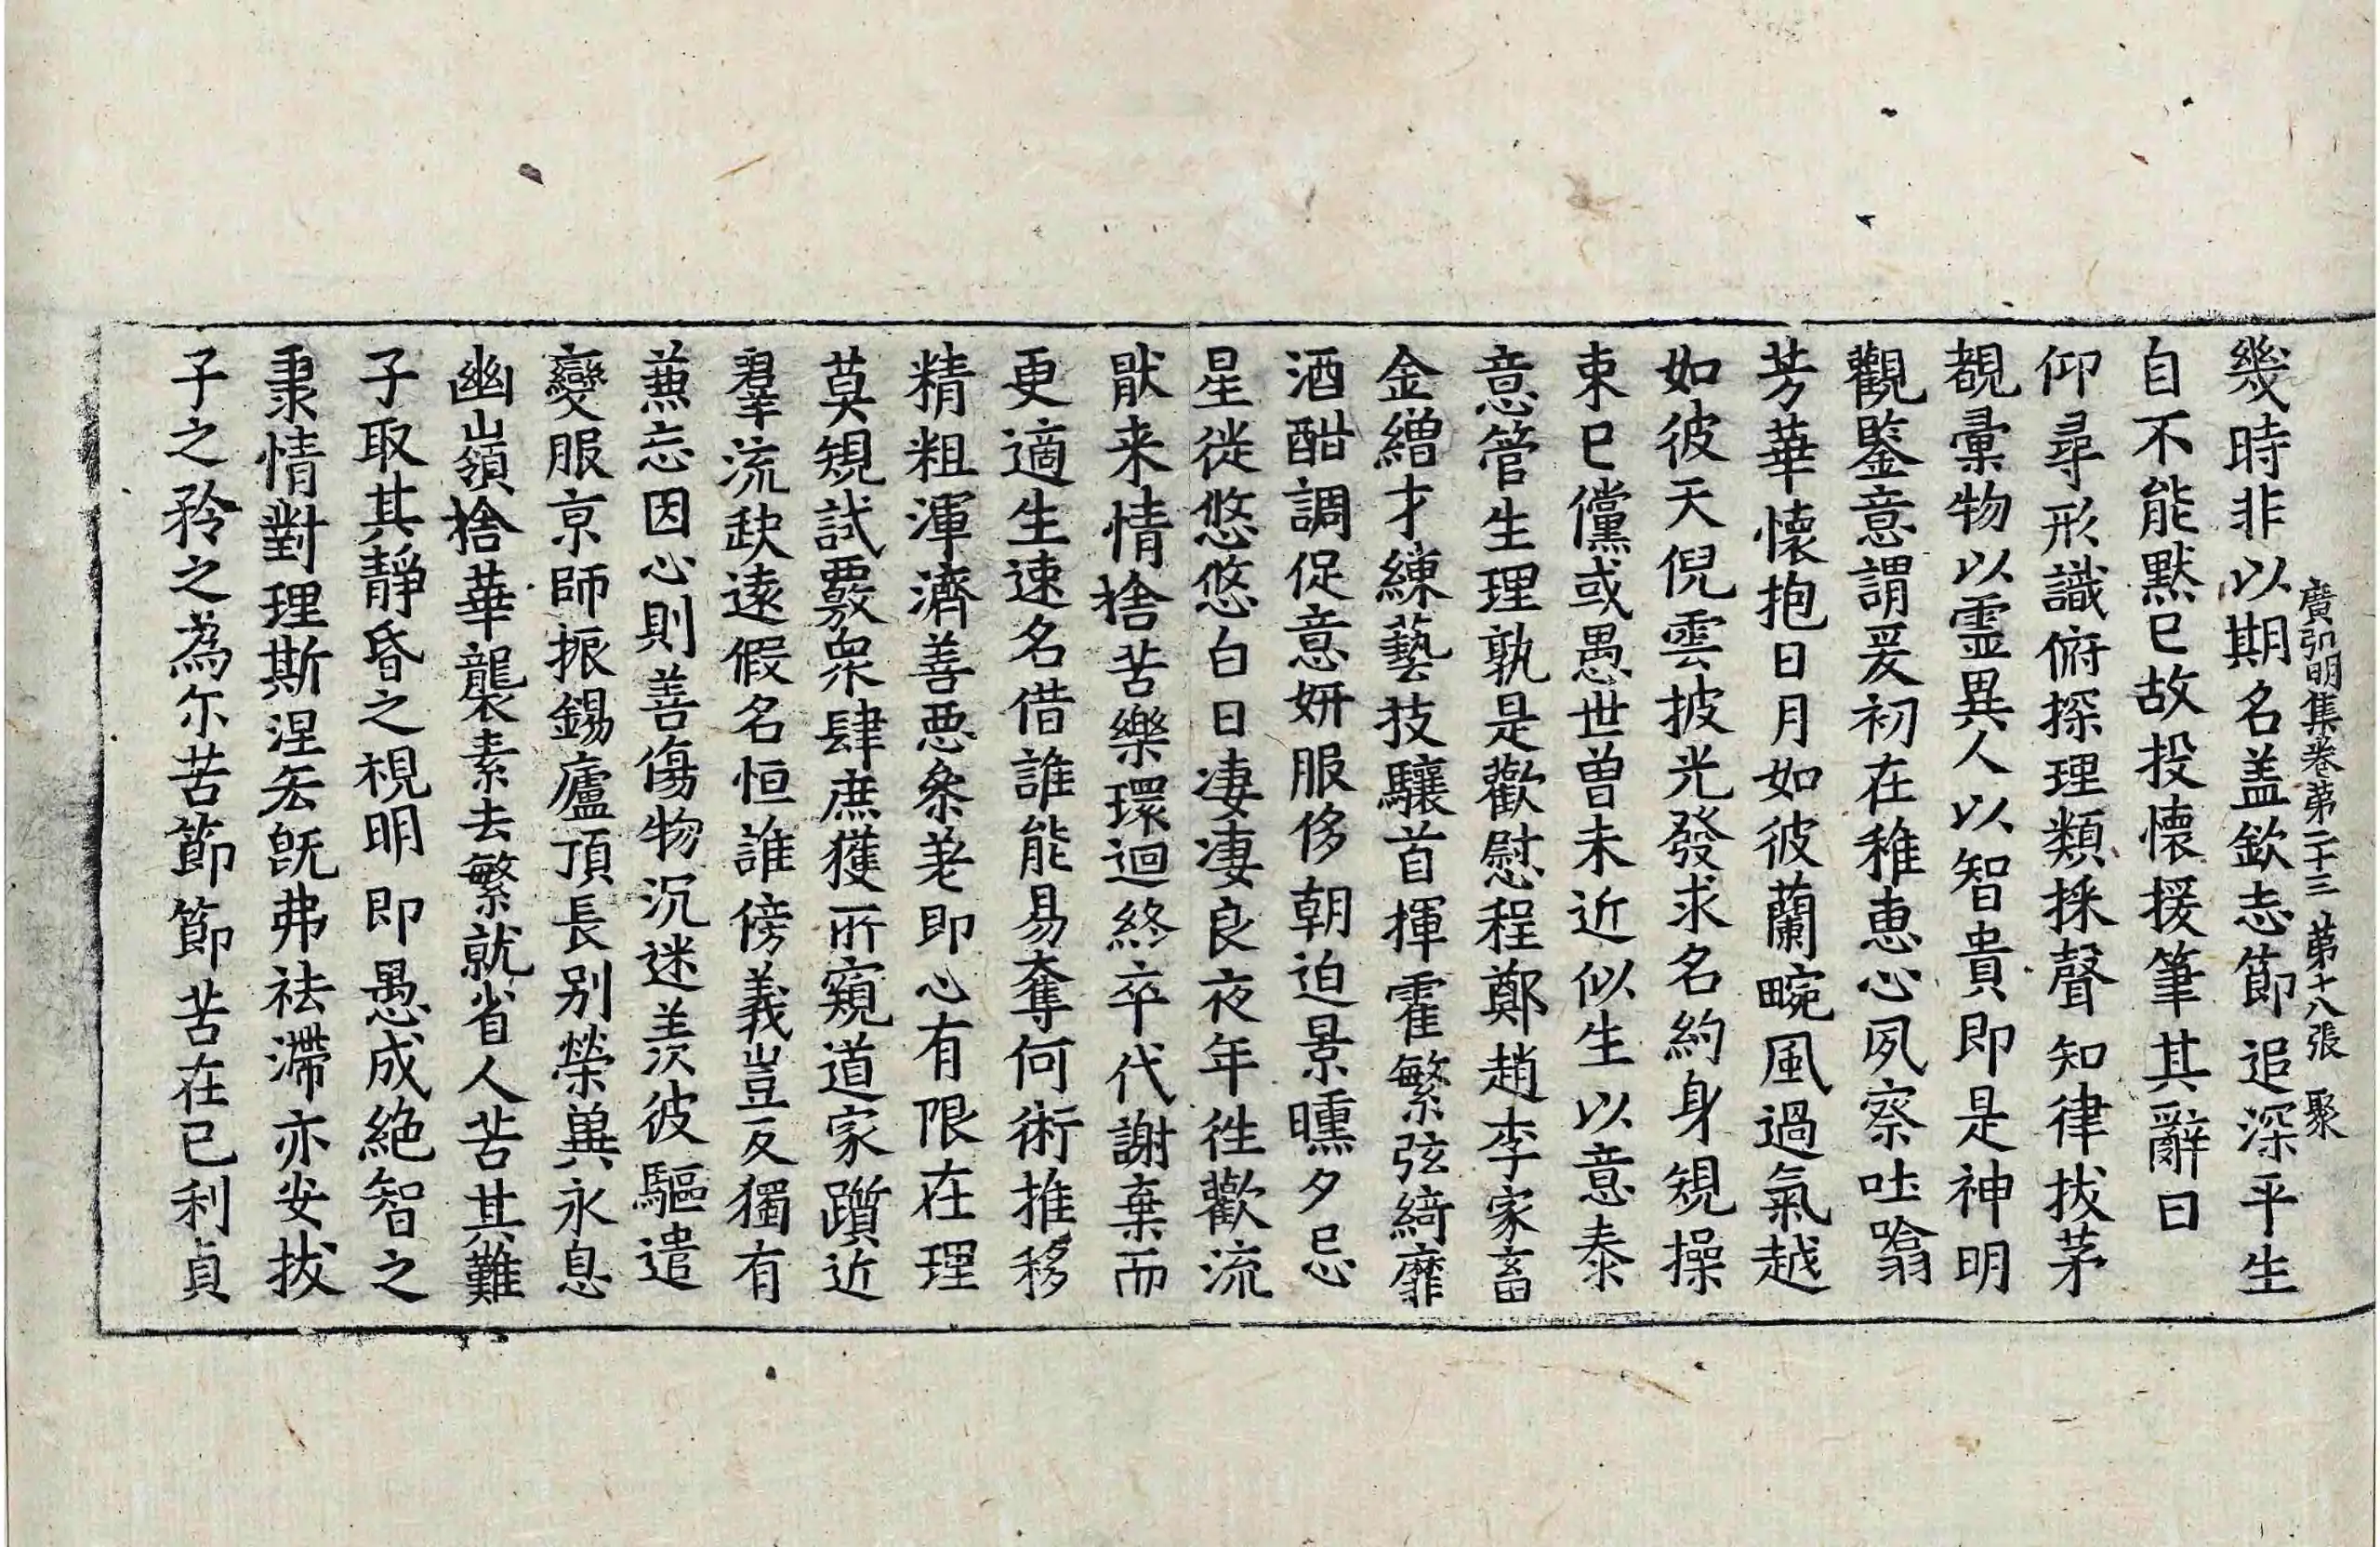 廣弘明集卷第二十三 第十八張 聚
幾時非以期名盖欽志節追深平生
自不能默已故投懷援筆其辭曰
仰尋形識俯探理類採聲知律拔茅
覩彙物以霊異人以智貴即是神明
觀鑒意謂爰初在稚恵心夙察吐噏
芳華懷抱日月如彼蘭畹風過氣越
如彼天倪雲披光發求名約身規操
束已儻或愚世曽未近似生以意泰
意管生理孰是歡慰程鄭趙李家畜
金繒才練藝技驤首揮霍繁弦綺靡
酒酣調促意妍服侈朝迫景曛夕忌
星徙悠悠白日凄凄良夜年徃歡流
猒来情捨苦樂環迴終卒代謝棄而
更適生速名借誰能易奪何術推移
精粗渾濟善惡叅差即心有限在理
莫規試覈衆肆庶獲所窺道家躓近
羣流缺遠假名恒誰傍義豈反獨有
兼忘因心則善傷物沉迷羨彼驅遣
變服京師振錫廬頂長别榮兾永息
幽嶺捨華襲素去繁就省人苦其難
子取其靜昏之視明即愚成絶智之
秉情對理斯涅忘旣弗祛滯亦安拔
子之矜之為尓苦節節苦在已利貞